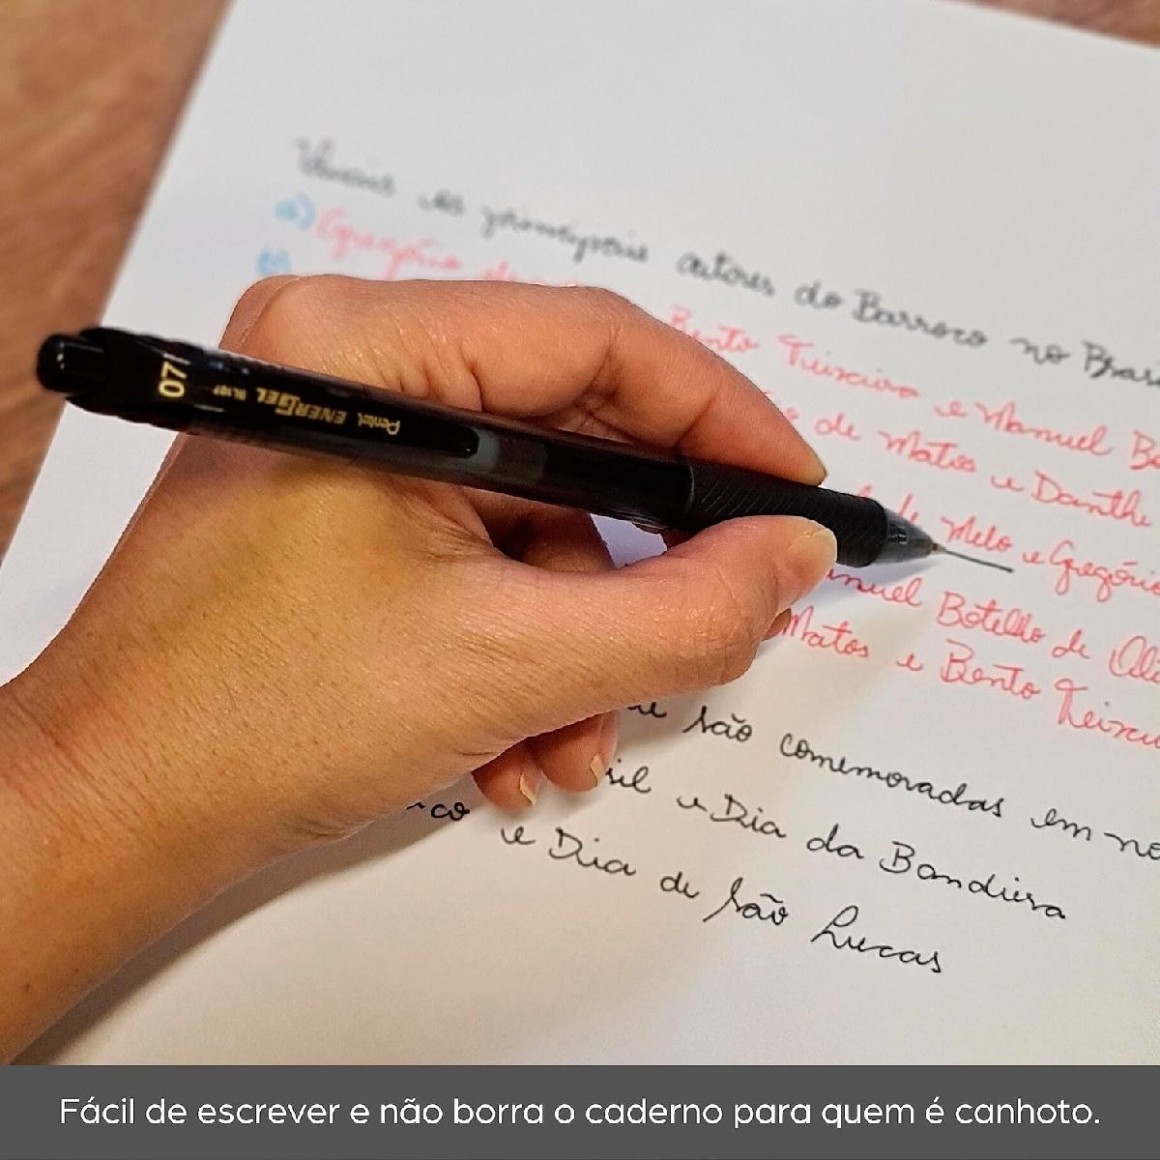 as principais autores do Barroco no Brasi
a) Gregório
b)
Bento Teixeira e Manuel Bo
de Matos e Danthe
de Melo e Gregório
anuel Botelho de Oli
Matos e Bento Teixei
são comemoradas em no
sil e Dia da Bandeira
ico e Dia de São Lucas
07
Pentel ENERGEL BL107
Fácil de escrever e não borra o caderno para quem é canhoto.